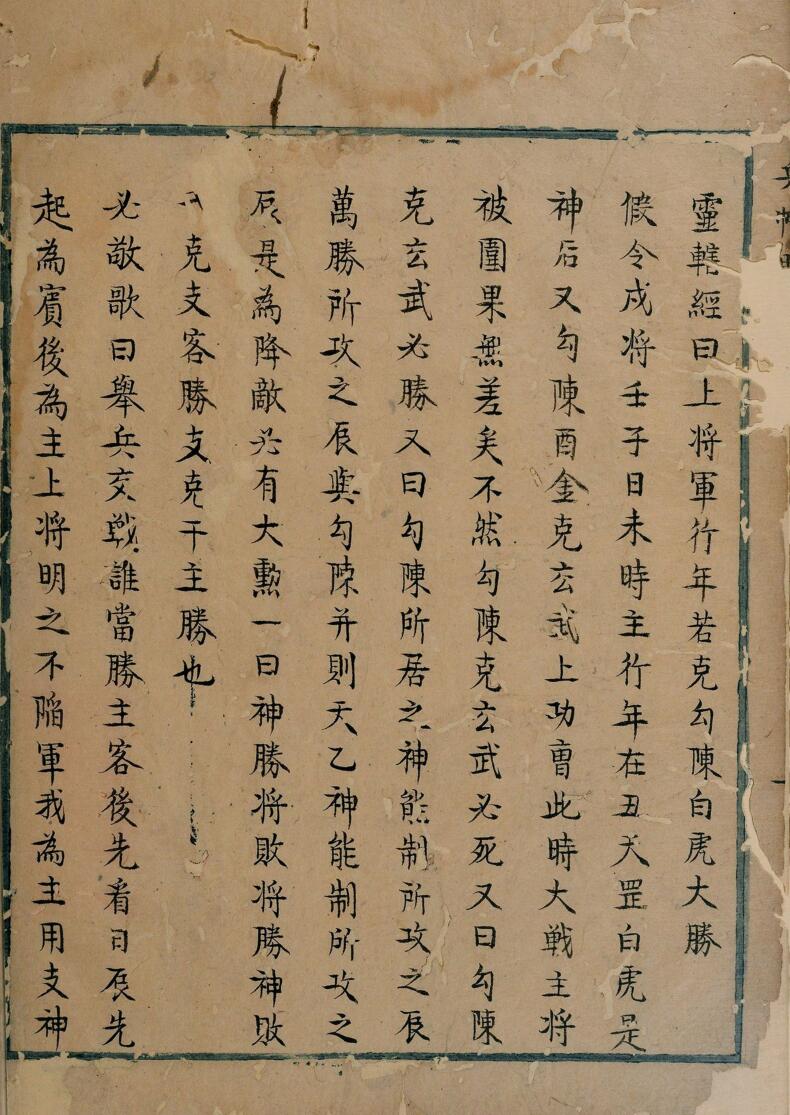 靈轄經曰上将軍行年若克勾陳白虎大勝
假令戍将壬子日未時主行年在丑天罡白虎是
神后又勾陳酉金克玄武上功曺此時大戦主将
被圍果無差矣不然勾陳克玄武必死又曰勾陳
克玄武必勝又曰勾陳所居之神能制所攻之辰
萬勝所攻之辰與勾陳并則天乙神能制所攻之
辰是為降敵必有大勲一曰神勝将敗将勝神敗
克支客勝支克干主勝也
必敵歌曰舉兵交戦誰當勝主客後先看日辰先
起為賓後為主上将明之不陷軍我為主用支神